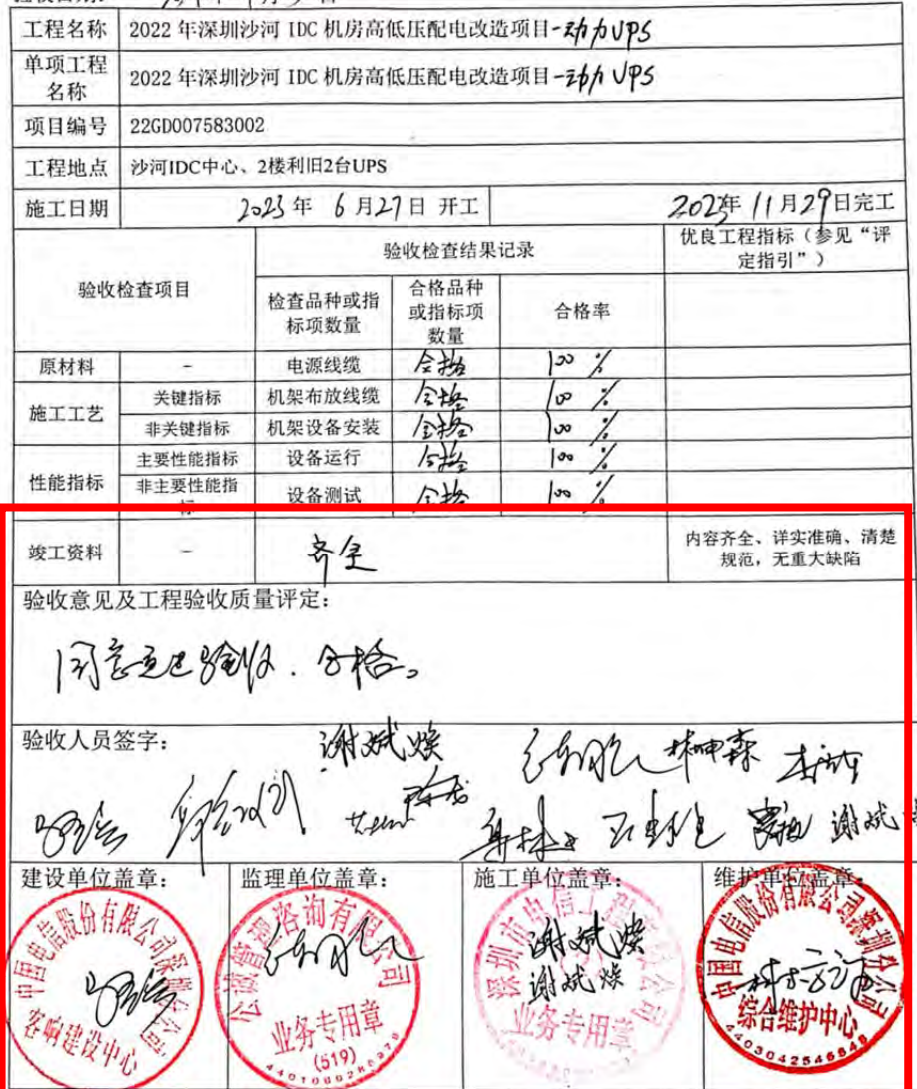 工程名称 2022 年深圳沙河 IDC 机房高低压配电改造项目-动力UPS
单项工程名称 2022 年深圳沙河 IDC 机房高低压配电改造项目-动力UPS
项目编号 22GD007583002
工程地点 沙河IDC中心、2楼利旧2台UPS
施工日期 2023年 6月27日 开工 2023年 11月29日完工
验收检查项目 验收检查结果记录 优良工程指标（参见“评定指引”）
检查品种或指标项数量 合格品种或指标项数量 合格率
原材料 - 电源线缆 合格 100 %
施工工艺 关键指标 机架布放线缆 合格 100 %
非关键指标 机架设备安装 合格 100 %
性能指标 主要性能指标 设备运行 合格 100 %
非主要性能指标 设备测试 合格 100 %
竣工资料 - 齐全 内容齐全、详实准确、清楚规范，无重大缺陷
验收意见及工程验收质量评定：
同意通过验收．合格。
验收人员签字：
谢斌焕 林坤森
谢斌
建设单位盖章： 监理单位盖章： 施工单位盖章： 维护单位盖章：
中国电信股份有限公司深圳分公司
客响建设中心
公诚管理咨询有限公司
业务专用章
(519)
谢斌焕
谢斌焕
业务专用章
中国电信股份有限公司深圳分公司
综合维护中心